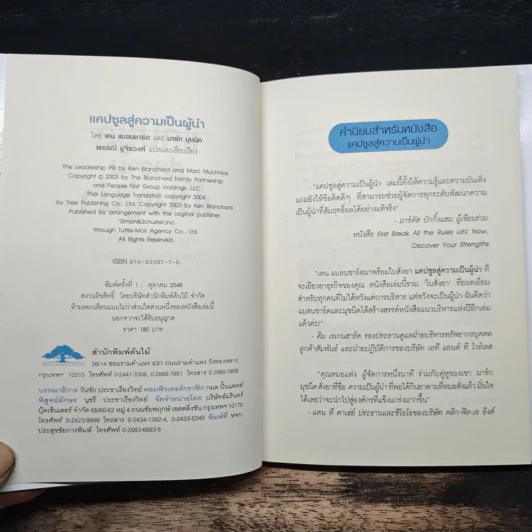 แคปซูลสู่ความเป็นผู้นำ
โดย เคน แบลนชาร์ด และ มาร์ก มุชนิค
พรรณี ชูจิรวงศ์ แปลและเรียบเรียง
The Leadership Pill by Ken Blanchard and Marc Muchnick
Copyright © 2003 by The Blanchard Family Partnership
and People First Group Holdings, LLC.
Thai Language Translation copyright 2004,
by Tree Publishing Co., Ltd. Copyright 2003 by Ken Blanchard
Published by arrangement with the original publisher,
"Simon&Schuster,Inc.
through Tuttle-Mori Agency Co., Ltd
All Rights Reserved.
ISBN 974-93397-7-0
พิมพ์ครั้งที่ 1 : ตุลาคม 2546
สงวนลิขสิทธิ์ โดยบริษัทสำนักพิมพ์ต้นไม้ จำกัด
ห้ามลอกเลียนแบบไม่ว่าส่วนใดส่วนหนึ่งของหนังสือเล่มนี้
นอกจากจะได้รับอนุญาต
ราคา 180 บาท
สำนักพิมพ์ต้นไม้
36/14 ซอยรามคำแหง 43/1 ถนนรามคำแหง วังทองหลาง
กรุงเทพฯ 10310 โทรศัพท์ 0-2441-3398, 0-2888-7857 โทรสาร 0-2888-7859
บรรณาธิการ วันชัย ประชาเรืองวิทย์ คอมพิวเตอร์กราฟิก กมล ปั้นแพทย์
พิสูจน์อักษร นุชรี ประชาเรืองวิทย์ จัดจำหน่ายโดย บริษัทอัมรินทร์
บุ๊คเซ็นเตอร์ จำกัด 65/60-62 หมู่ 4 ถนนชัยพฤกษ์ เขตตลิ่งชัน กรุงเทพฯ 10170
โทรศัพท์ 0-2423-9999 โทรสาร 0-2434-1382-4, 0-2433-5345 พิมพ์ที่ หจก.
ประสุขชัยการพิมพ์ โทรศัพท์ 0-2683-6683-5
คำนิยมสำหรับหนังสือ
แคปซูลสู่ความเป็นผู้นำ
"แคปซูลสู่ความเป็นผู้นำ เล่มนี้ทั้งให้ความรู้และความบันเทิง
แถมยังให้ข้อคิดดีๆ ที่สามารถช่วยผู้จัดการทุกระดับพัฒนาความ
เป็นผู้นำที่สัมฤทธิ์ผลได้อย่างแท้จริง"
- มาร์คัส บักกิ้งแฮม ผู้เขียนร่วม
หนังสือ First Break All the Rules และ Now,
Discover Your Strengths
"เคน แบลนชาร์ดมาพร้อมใบสั่งยา แคปซูลสู่ความเป็นผู้นำ ที่
จะเยียวยาธุรกิจของคุณ หนังสือเล่มนี้รวม 'ใบสั่งยา' ที่ยอดเยี่ยม
สำหรับทุกคนที่ไม่ได้หวังแค่การบริหาร แต่หวังจะเป็นผู้นำ ฉันคิดว่า
แบลนชาร์ดและมุชนิคได้สร้างสรรค์หนังสือแนวบริหารแห่งปีอีกเล่ม
แล้วค่ะ!"
- คิม เรเกนสาร์ด รองประธานดูแลฝ่ายบริหารทรัพยากรบุคคล
ลูกค้าสัมพันธ์ และฝ่ายปฏิบัติการของบริษัท เอที แอนด์ ที ไวร์เลส
"คุณหมอแห่ง ผู้จัดการหนึ่งนาที ร่วมกับคู่หูของเขา มาร์ก
มุชนิค สั่งยาที่ชื่อ ความเป็นผู้นำ ที่พอได้กินยาตามที่หมอสั่งแล้ว มั่นใจ
ได้เลยว่าจะนำไปสู่องค์กรที่แข็งแกร่งมากขึ้น"
- แคน ที คาเฮ่ย์ ประธานและซีอีโอของบริษัท คลิก-ฟิล-เอ อิงค์